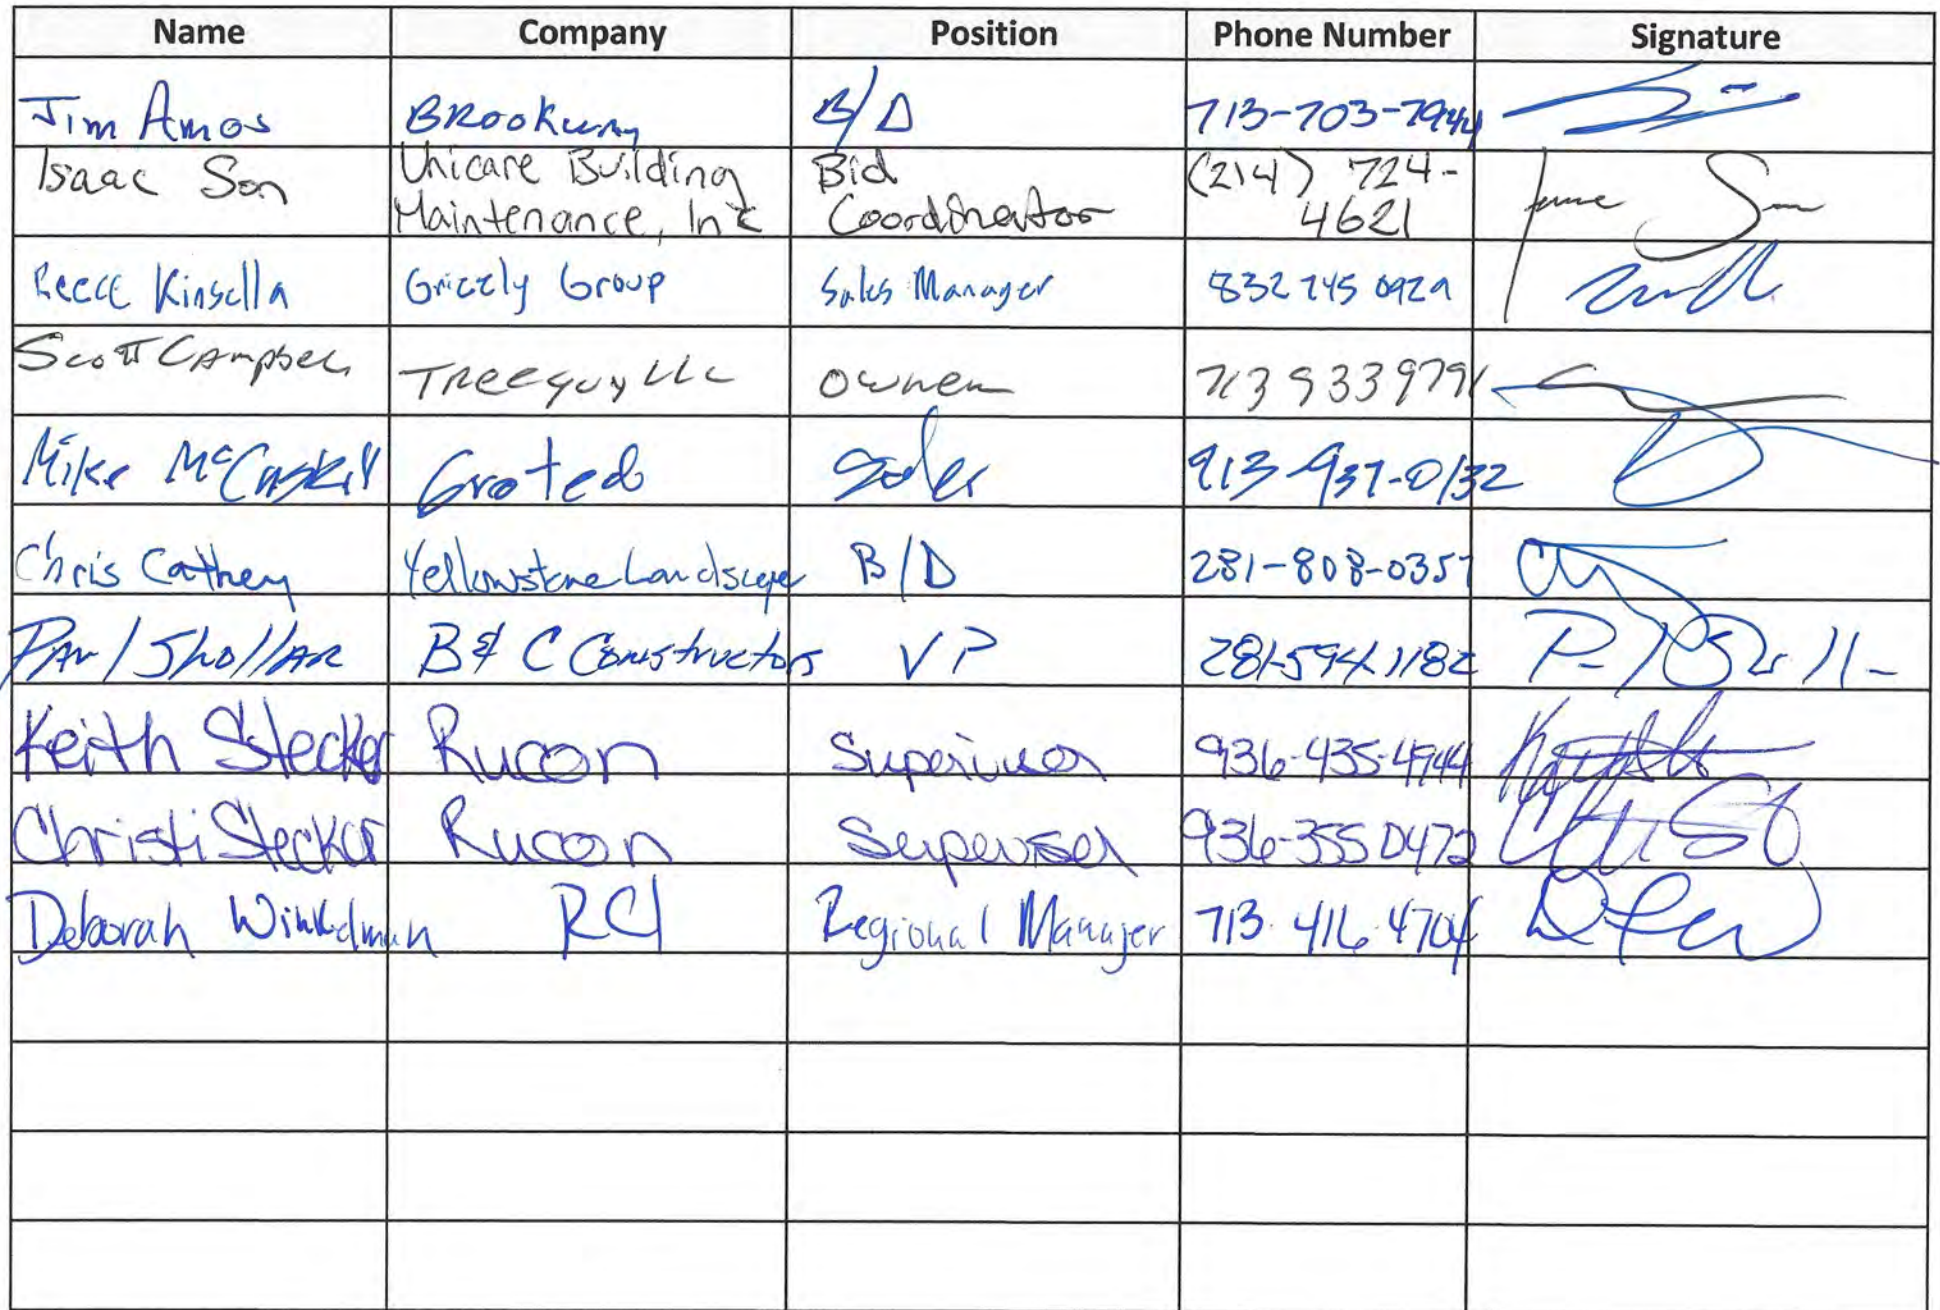 Name Company Position Phone Number Signature
Jim Amos Brookway B/D 713-703-7944
Isaac Son Unicare Building Bid (214) 724-
Maintenance, Inc Coordinator 4621
Reece Kinsella Grizzly Group Sales Manager 832 745 0929
Scott Campbell Treeguy LLC Owner 713 933 9791
Mike McCaskill Sales 913-937-0132
Chris Cathey Yellowstone Landscape B/D 281-808-0357
Paul Shollar B&C Constructors VP 281-594-1182
Keith Stecker Rucon Supervisor 936-435-4944
Christi Stecker Rucon Supervisor 936-355 0472
Deborah Winkelman RCI Regional Manager 713 416 4704